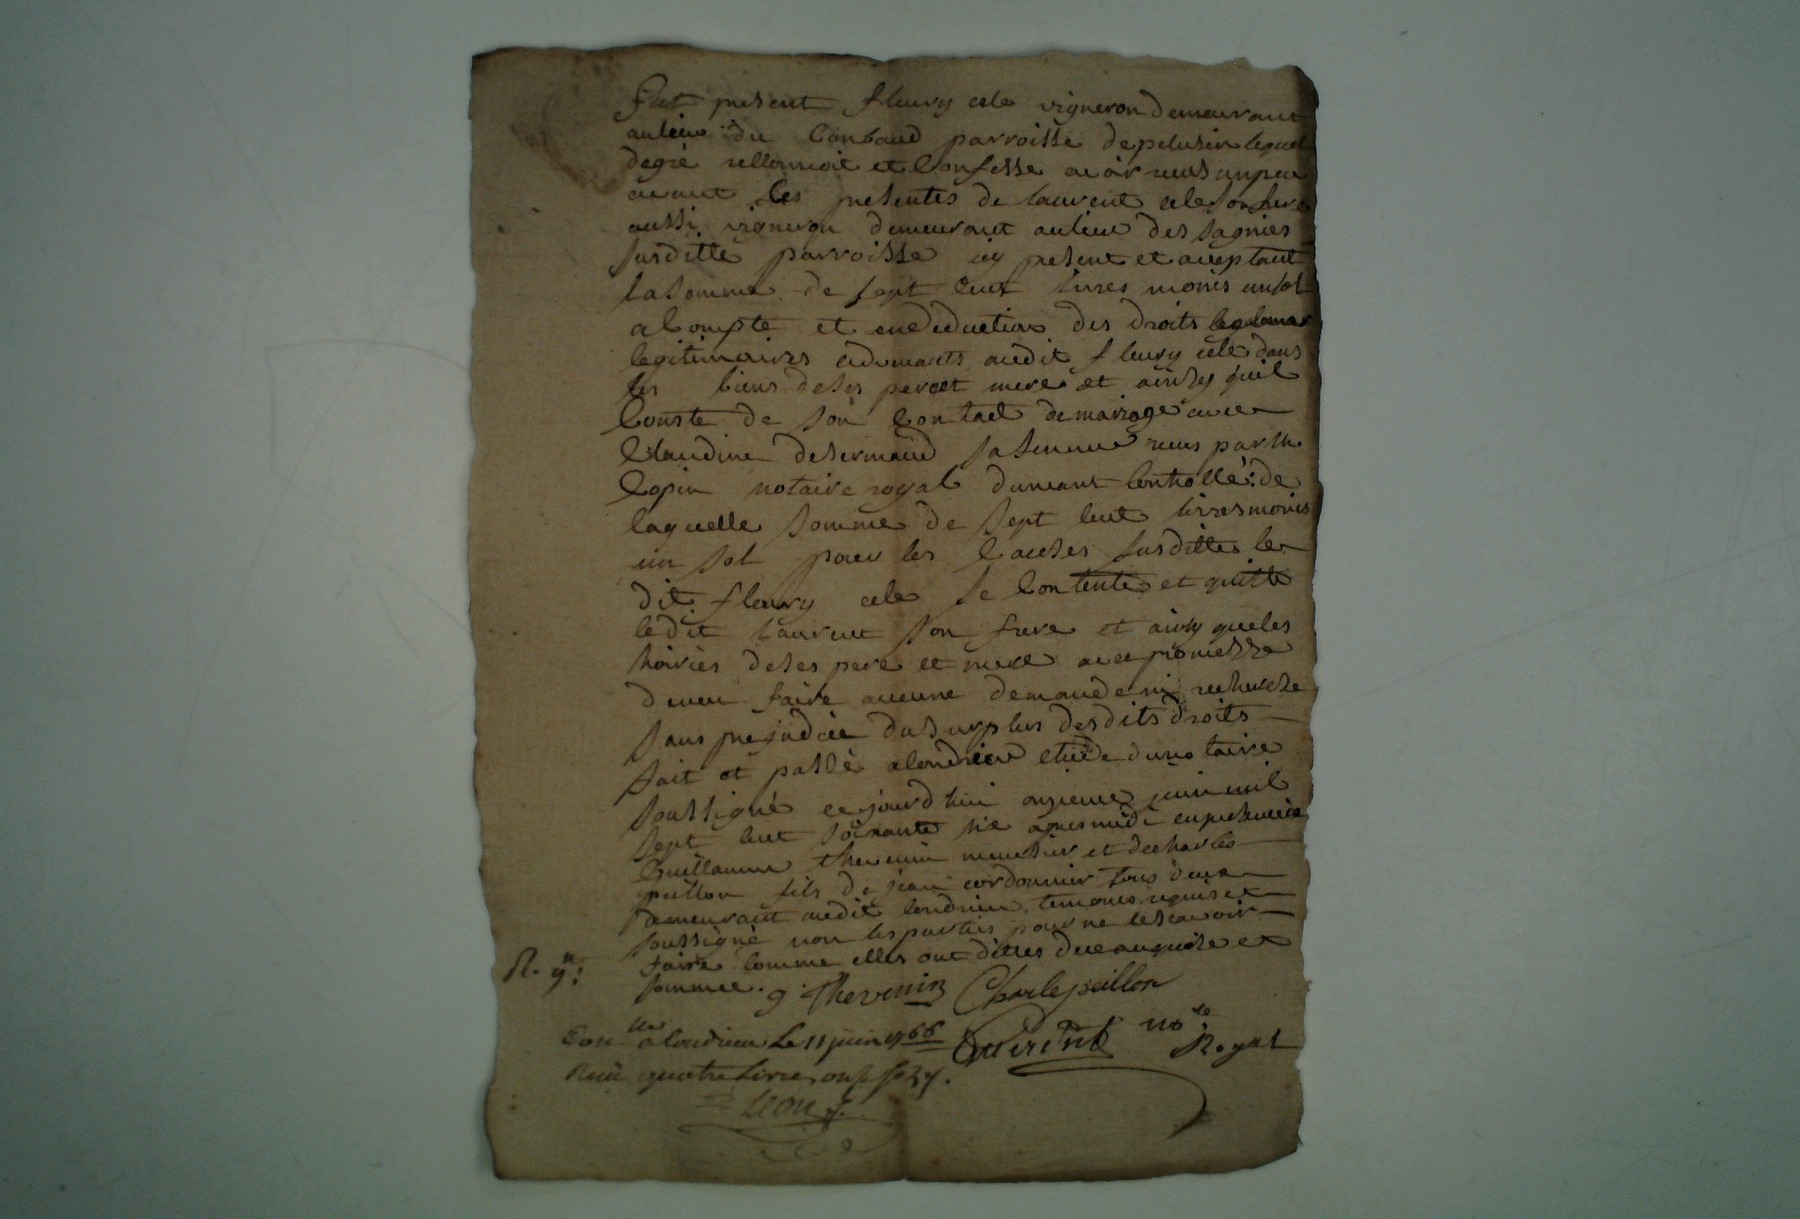 fut present fleury cele vigneron demeurant
au lieu du Conbaud parroisse de pelusin lequel
degré reconnoit et Confesse avoir reçus un peu
avant les presentes de laurent cele son frere
aussi vigneron demeurant au lieu des sagnies
susditte parroisse icy present et acceptant
la somme de sept Cent livres moins un sol
a Compte et en deduction des droits
legitimaires advenants audit fleury cele dans
les biens de ses pere et mere et ainsy quil
Conste de son Contact de mariage avec
Claudine desermaud sa femme reçus par me
Copin notaire royal dumeant Controllé: de
laquelle somme de sept Cent livres moins
un sol pour les Causes susdittes le
dit fleury cele se Contente et quitte
ledit laurent son frere et ainsy que les
hoiries de ses pere et mere avec promesse
denen faire aucune demande ni recherche
sans prejudice du surplus desdits droits
fait et passé a Condrieu etude du notaire
soussigné ce jourdhui onzieme juin mil
sept Cent soixante six apres midi en presence de
Guillaume thevenin menusier et de charles
peillon fils de jean cordonnier tous deux
demeurant audit Condrieu temoins requis et
soussigné non les parties pour ne le scavoir
faire Comme elles ont dittes de ce enquise et
sommee. g. thevenin Charle peillon
R. gn:
Con lle a Condrieu Le 11 juin 1766
no re Royal
Reçu quatre Livres onze s
Leon